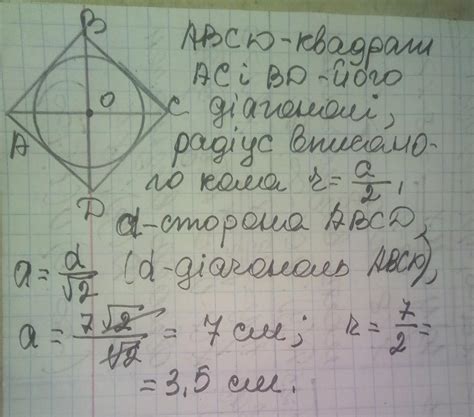 B
A
O
C
D
ABCD-квадрат
AC і BD-його
діагоналі,
радіус вписано-
го кола r = a/2,
a-сторона ABCD,
a = d/√2 (d-діагональ ABCD),
a = 7√2/√2 = 7 см; r = 7/2 =
= 3,5 см.